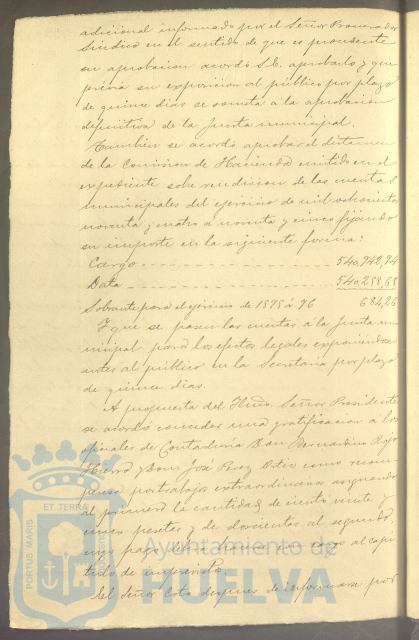 adicional informado por el Señor Procurador
Síndico en el sentido de que es procedente
su aprobacion acordó S.E. aprobarlo y que
previa su exposicion al público por plazo
de quince dias se someta á la aprobacion
definitiva de la Junta municipal.
Tambien se acordó aprobar el dictamen
de la Comision de Hacienda emitido en el
expediente sobre rendicion de las cuentas
municipales del ejercicio de mil ochocientos
noventa y cuatro á noventa y cinco fijando
su importe en la siguiente forma:
Cargo 540.942,94
Data 540.258,68
Sobrante para el ejercicio de 1895 á 96 684,26
Y que se pasen las cuentas á la Junta mu
nicipal para los efectos legales exponiendose
antes al público en la Secretaría por plazo
de quince dias.
A propuesta del Iltmo. Señor Presidente
se acordó conceder una gratificacion á los
oficiales de Contaduría Don Bernardino Rojo
y Don José Perez como recom
pensa por trabajos extraordinarios asignando
al primero la cantidad de ciento veinte y
cinco pesetas y de doscientas al segundo,
cuyo pago deberá cargo al capí
tulo de imprevistos.
El Señor Cota despues de informar por
PORTUS MARIS
ET TERRAE
Ayuntamiento de
HUELVA